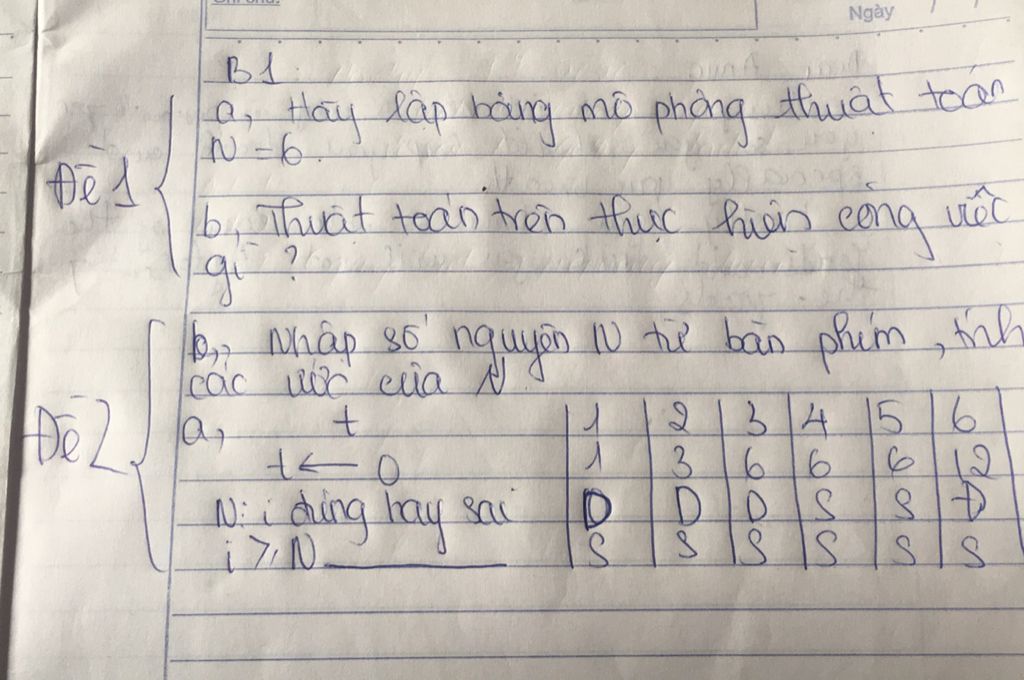 Ngày
B1
a, Hãy lập bảng mô phỏng thuật toán
N = 6.
Đề 1
b, Thuật toán trên thực hiện công việc
gì ?
b, Nhập số nguyên N từ bàn phím, tính
các ước của N
Đề 2
a, t 1 2 3 4 5 6
t ← 0 1 3 6 6 6 12
N : i đúng hay sai D D D S S Đ
i ⩾ N S S S S S S